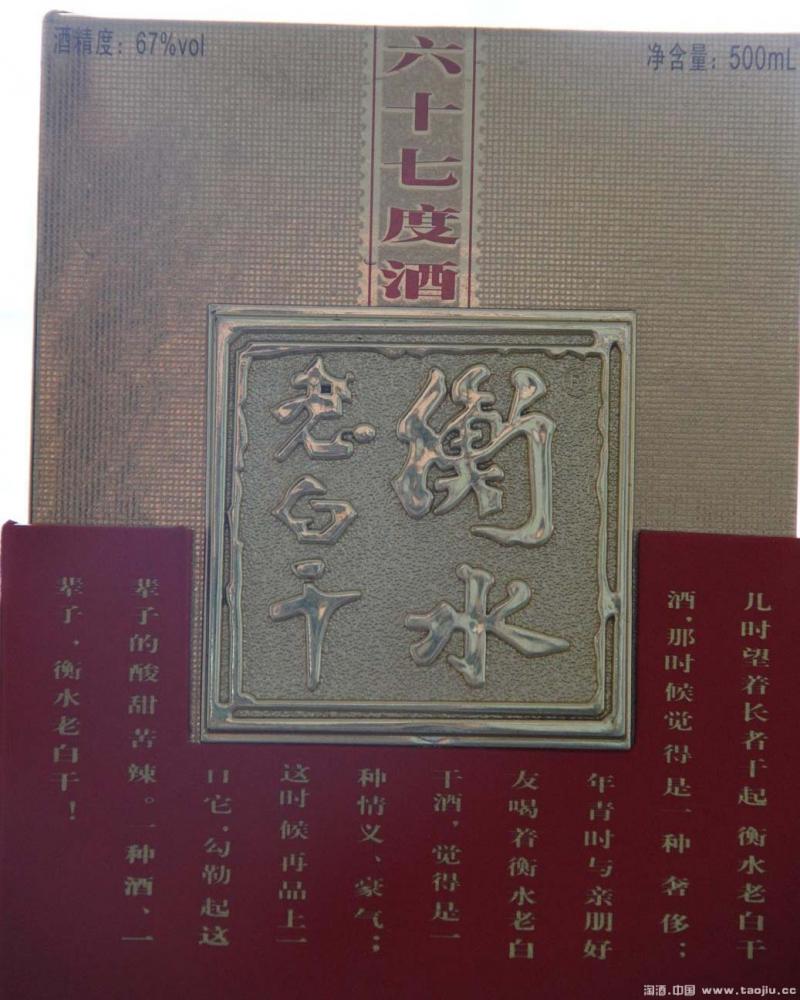 酒精度：67%vol
净含量：500mL
六十七度酒
衡水
老白干
儿时望着长者干起 衡水老白干
酒，那时候觉得是一种奢侈；
年青时与亲朋好
友喝着衡水老白
干酒，觉得是一
种情义、豪气；
这时候再品上一
口它，勾勒起这
辈子的酸甜苦辣。一种酒、一
辈子，衡水老白干！
淘酒.中国 www.taojiu.cc